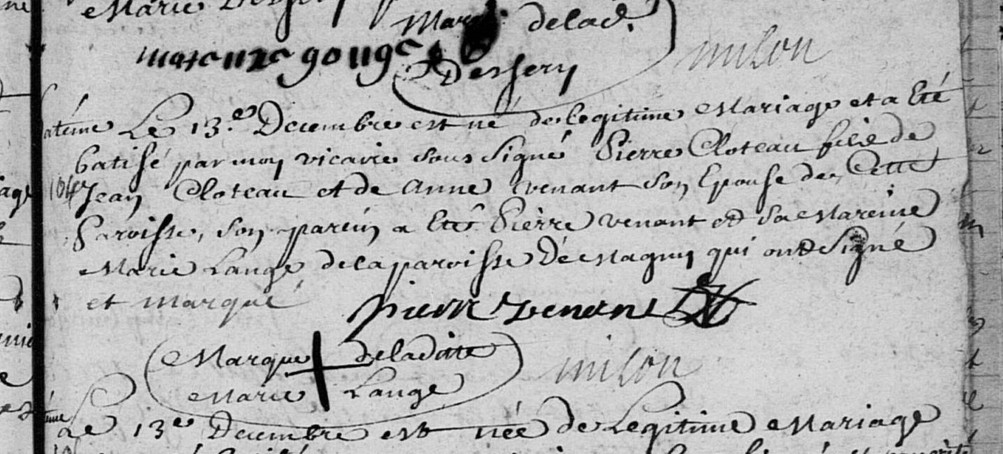 Marie Dessery
Marq. delad.
marenne gouge
Dessery
milon
Le 13.e Decembre est né de legitime Mariage et a Eté
batisé par moy vicaire sous signé Pierre Cloteau fils de
Jean Cloteau et de Anne venant son Epouse de Cette
Paroisse, son parein a Eté Pierre venant et sa Mareine
Marie Lange de la paroisse De Magny qui ont Signé
et marqué
pierre venant
Marque deladitte
Marie Lange
milon
Le 13e Decembre est née de Legitime Mariage